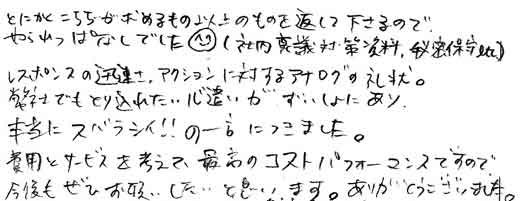 とにかくこちらが求めるもの以上のものを返して下さるので、
やられっぱなしでした(社内稟議対策資料,秘密保守etc)
レスポンスの迅速さ,アクションに対するアナログの礼状。
弊社でもとり入れたい心遣いが ずいしょにあり、
本当に スバラシイ!! の一言につきました。
費用とサービスを考えて、最高のコストパフォーマンスですので
今後もぜひお願いしたいと思います。ありがとうございました。